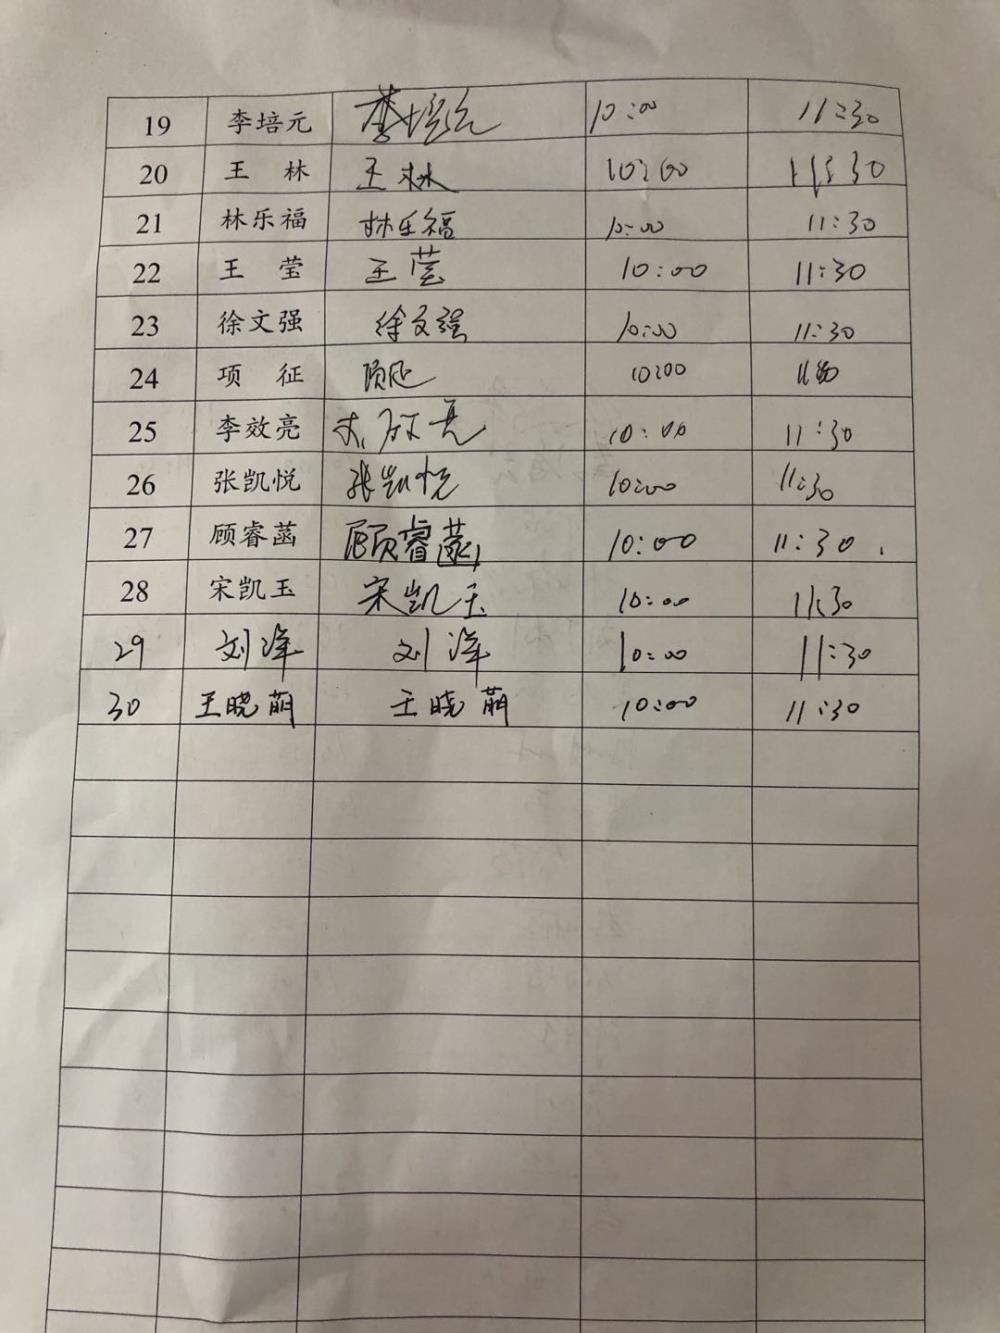 19 李培元 李培元 10:00 11:30
20 王 林 王林 10:00 11:30
21 林乐福 林乐福 10:00 11:30
22 王 莹 王莹 10:00 11:30
23 徐文强 徐文强 10:00 11:30
24 项 征 项征 10:00 11:30
25 李效亮 李效亮 10:00 11:30
26 张凯悦 张凯悦 10:00 11:30
27 顾睿菡 顾睿菡 10:00 11:30
28 宋凯玉 宋凯玉 10:00 11:30
29 刘洋 刘洋 10:00 11:30
30 王晓萌 王晓萌 10:00 11:30